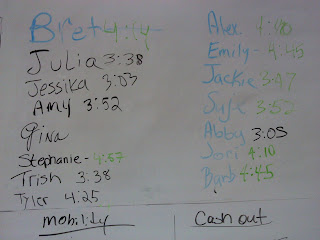 Bret 4:14-
Julia 3:38
Jessika 3:03
Amy 3:52
Gina
Stephanie - 4:57
Trish 3:38
Tyler 4:25
mobility
Alex
Emily - 4:45
Jackie 3:47
3:52
Abby 3:05
Jori 4:10
Barb 4:45
Cash out